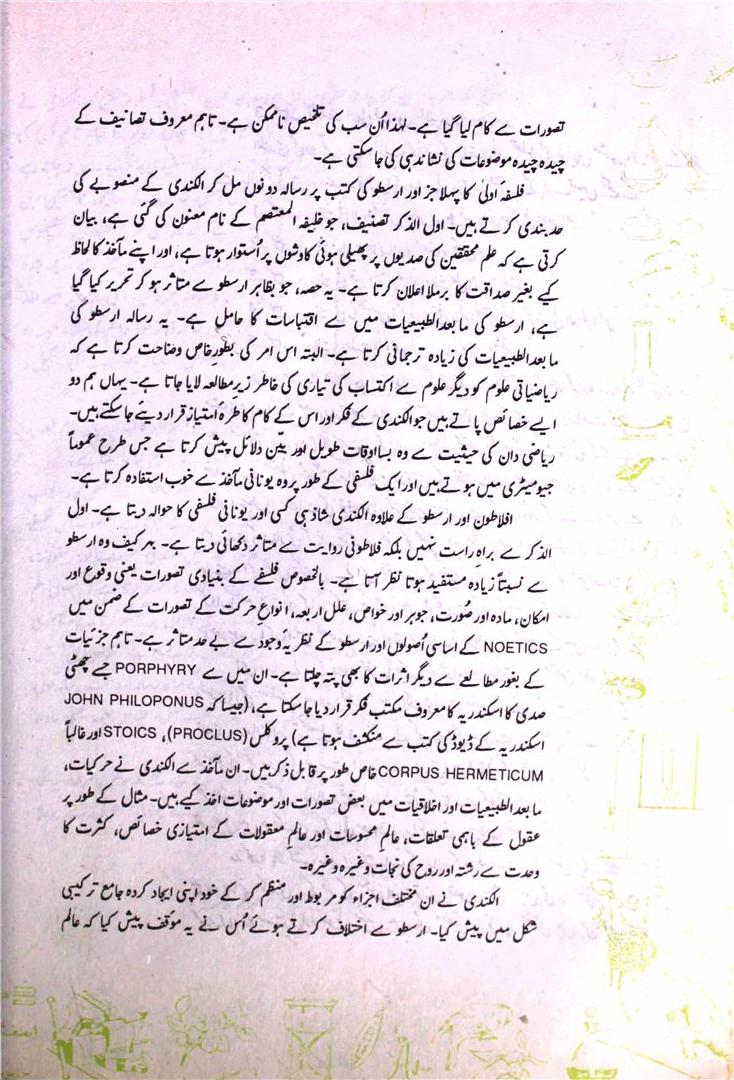 تصورات سے کام لیا گیا ہے۔ لہٰذا اُن سب کی تلخیص ناممکن ہے۔ تاہم معروف تصانیف کے
چیدہ چیدہ موضوعات کی نشاندہی کی جا سکتی ہے۔
فلسفہ اولیٰ کا پہلا جز اور ارسطو کی کتب پر رسالہ دونوں مل کر الکندی کے منصوبے کی
حد بندی کرتے ہیں۔ اول الذکر تصنیف، جو خلیفہ المعتصم کے نام معنون کی گئی ہے، بیان
کرتی ہے کہ علم محققین کی صدیوں پر پھیلی ہوئی کاوشوں پر اُستوار ہوتا ہے، اور اپنے مآخذ کا لحاظ
کیے بغیر صداقت کا برملا اعلان کرتا ہے۔ یہ حصہ، جو بظاہر ارسطو سے متاثر ہو کر تحریر کیا گیا
ہے، ارسطو کی مابعد الطبیعیات میں سے اقتباسات کا حامل ہے۔ یہ رسالہ ارسطو کی
مابعد الطبیعیات کی زیادہ ترجمانی کرتا ہے۔ البتہ اس امر کی بطورِ خاص وضاحت کرتا ہے کہ
ریاضیاتی علوم کو دیگر علوم سے اکتساب کی تیاری کی خاطر زیرِ مطالعہ لایا جاتا ہے۔ یہاں ہم دو
ایسے خصائص پاتے ہیں جو الکندی کے فکر اور اس کے کام کا طرہٴ امتیاز قرار دیئے جا سکتے ہیں۔
ریاضی دان کی حیثیت سے وہ بسا اوقات طویل اور بیّن دلائل پیش کرتا ہے جس طرح عموماً
جیومیٹری میں ہوتے ہیں اور ایک فلسفی کے طور پر وہ یونانی مآخذ سے خوب استفادہ کرتا ہے۔
افلاطون اور ارسطو کے علاوہ الکندی شاذ ہی کسی اور یونانی فلسفی کا حوالہ دیتا ہے۔ اول
الذکر سے براہِ راست نہیں بلکہ فلاطونی روایت سے متاثر دکھائی دیتا ہے۔ بہر کیف وہ ارسطو
سے نسبتاً زیادہ مستفید ہوتا نظر آتا ہے۔ بالخصوص فلسفے کے بنیادی تصورات یعنی وقوع اور
امکان، مادہ اور صُورت، جوہر اور خواص، علل اربعہ، انواعِ حرکت کے تصورات کے ضمن میں
NOETICS کے اساسی اُصولوں اور ارسطو کے نظریہٴ وجود سے بے حد متاثر ہے۔ تاہم جزئیات
کے بغور مطالعے سے دیگر اثرات کا بھی پتہ چلتا ہے۔ ان میں سے PORPHYRY جسے چھٹی
صدی کا اسکندریہ کا معروف مکتب فکر قرار دیا جا سکتا ہے، (جیسا کہ JOHN PHILOPONUS
اسکندریہ کے ڈیوڈ کی کتب سے منکشف ہوتا ہے) پروکلس (PROCLUS)، STOICS اور غالباً
CORPUS HERMETICUM خاص طور پر قابل ذکر ہیں۔ ان مآخذ سے الکندی نے حرکیات،
مابعد الطبیعیات اور اخلاقیات میں بعض تصورات اور موضوعات اخذ کیے ہیں۔ مثال کے طور پر
عقول کے باہمی تعلقات، عالمِ محسوسات اور عالمِ معقولات کے امتیازی خصائص، کثرت کا
وحدت سے رشتہ اور روح کی نجات وغیرہ وغیرہ۔
الکندی نے ان مختلف اجزاء کو مربوط اور منظم کر کے خود اپنی ایجاد کردہ جامع ترکیبی
شکل میں پیش کیا۔ ارسطو سے اختلاف کرتے ہوئے اُس نے یہ موٴقف پیش کیا کہ عالم